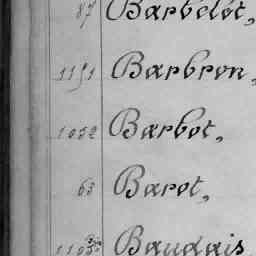 87 Barbelot,
1151 Barbron,
1052 Barbot,
63 Barot,
Baudais